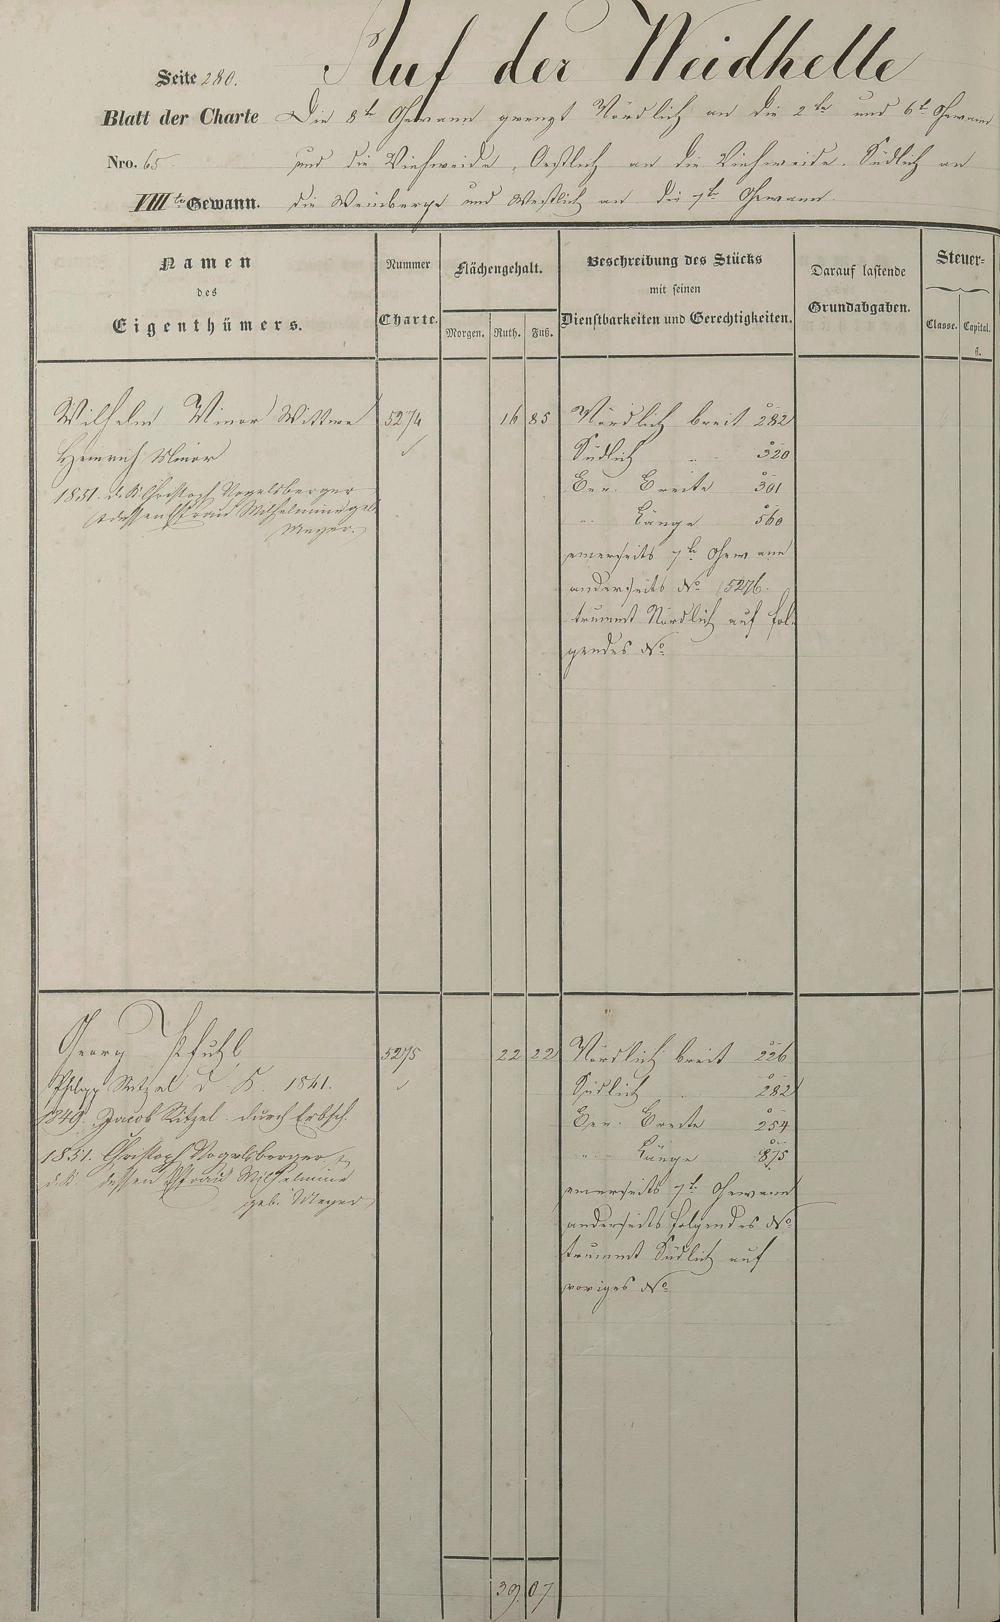 Auf der Weidhelle
Seite 280.
Blatt der Charte
Nro. 65
VIIIte Gewann.
Die 8te Gewann grenzt Nördlich an die 2te und 6te Gewann
und die Viehweide, Oestlich an die Viehweide. Südlich an
die Weinberge und Westlich an die 7te Gewann.
Namen
des
Eigenthümers.
Nummer
Charte.
Flächengehalt.
Morgen. Ruth. Fuß.
Beschreibung des Stücks
mit seinen
Dienstbarkeiten und Gerechtigkeiten.
Darauf lastende
Grundabgaben.
Steuer-
Classe. Capital.
fl.
Wilhelm Minor Wittwe 5274 16 85 Nördlich breit 282
Heinrich Minor Südlich 320
1851. d. K. Christoph Vogelsberger Ger. Breite 301
& dessen Ehefrau Wilhelmine geb.
Meyer.
" Länge 560
einerseits 7te Gewann
anderseits No 5276.
trummt Nördlich auf fol-
gendes No
Georg Pfuhl 5275 22 22 Nördlich breit 226
Philipp Ritzel d. K. 1841. Südlich 282
1849. Jacob Ritzel durch Erbsch. Ger. Breite 254
1851. Christoph Vogelsberger & " Länge 875
d. K. dessen Ehefrau Wilhelmine
geb. Meyer
einerseits 7te Gewann
anderseits folgendes No
trummt Südlich auf
voriges No
39 07